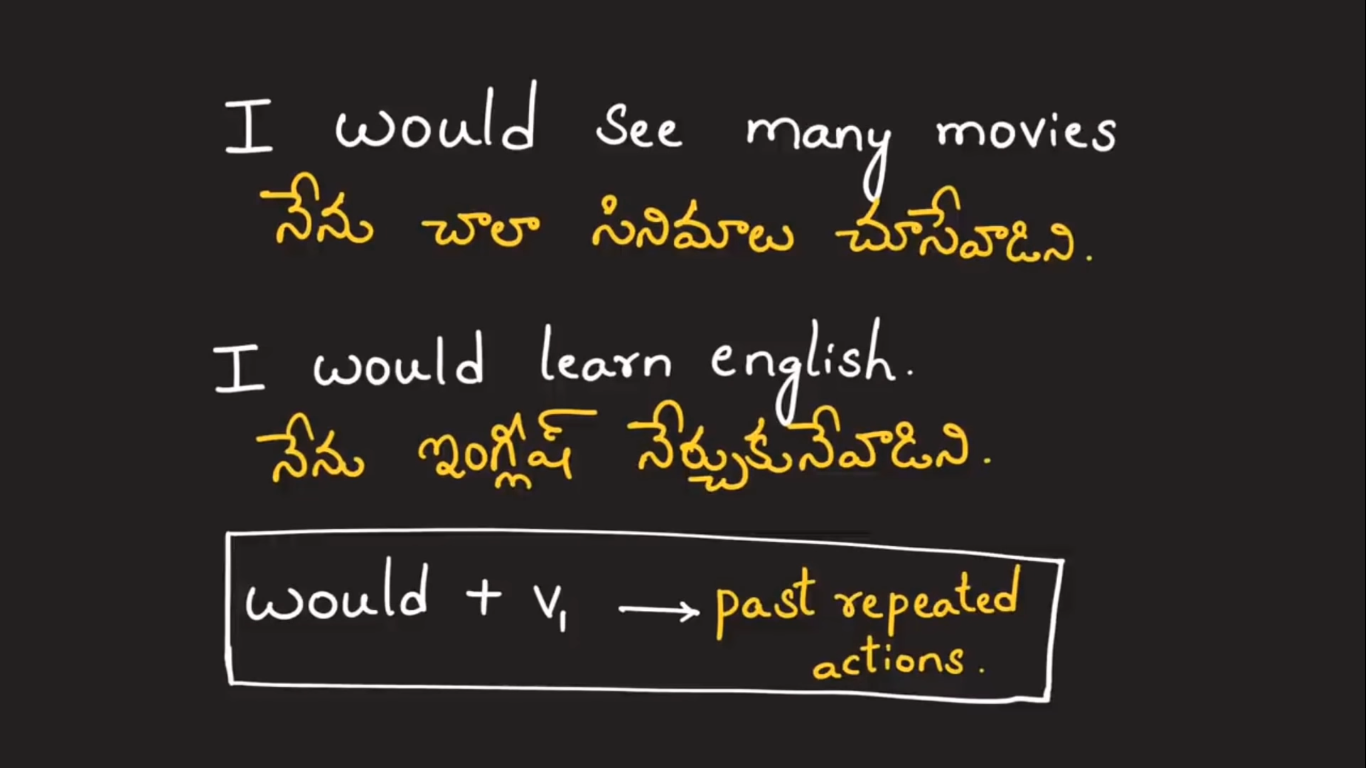 I would see many movies
నేను చాలా సినిమాలు చూసేవాడిని.
I would learn english.
నేను ఇంగ్లీష్ నేర్చుకునేవాడిని.
would + v₁ → past repeated
actions.